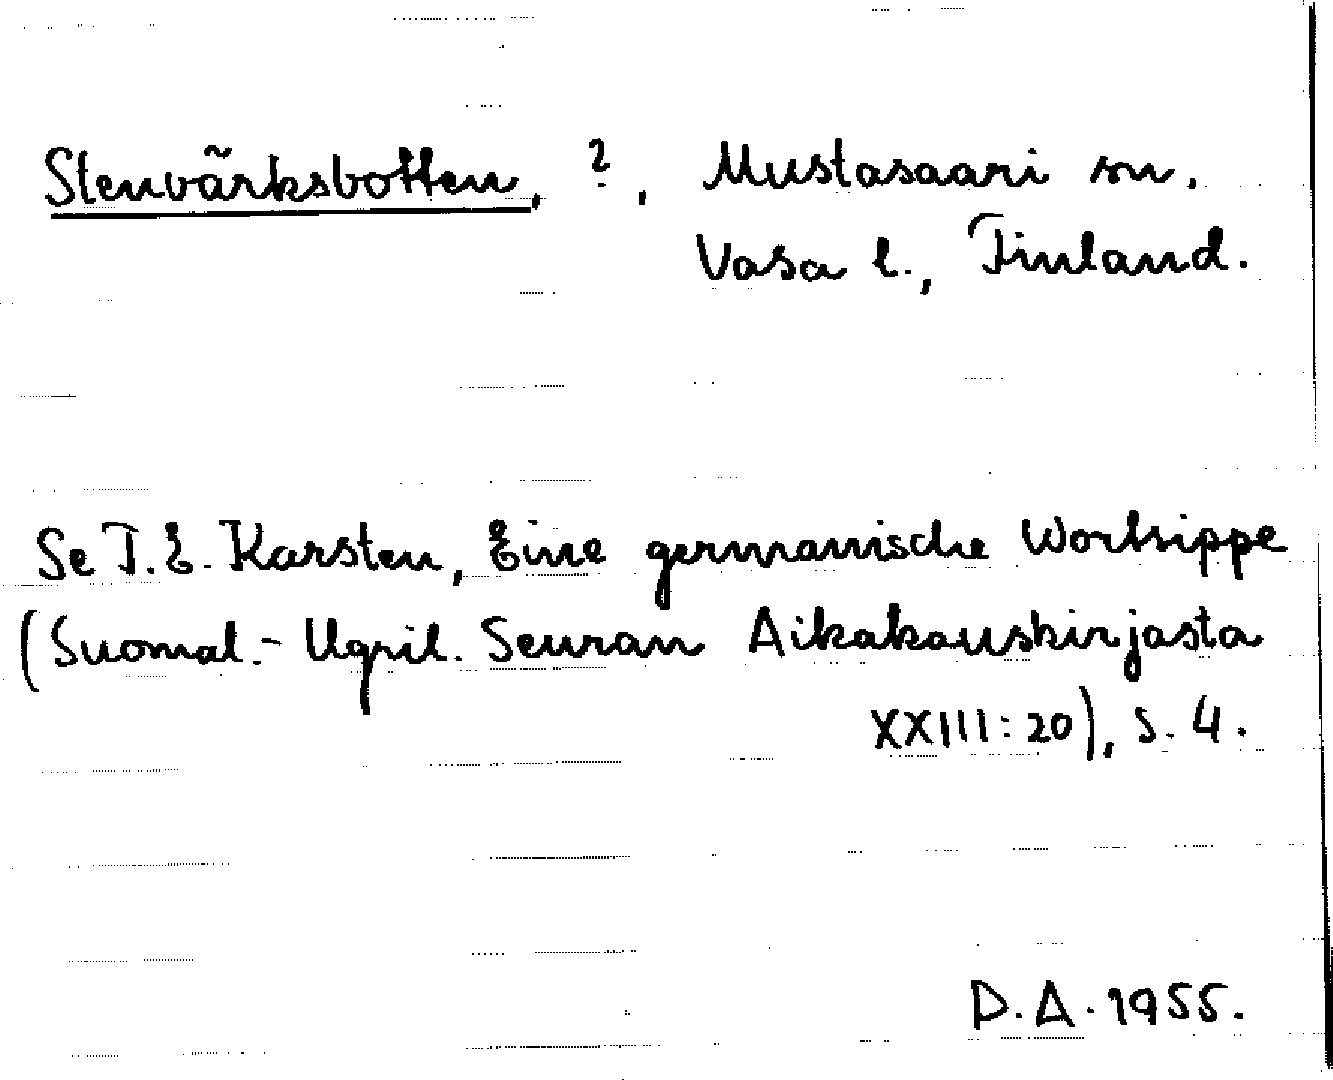 Stenvärksbotten, ?, Mustasaari sn.
Vasa l., Finland.
Se T. E. Karsten, Eine germanische Wortsippe
(Suomal.- Ugril. Seuran Aikakauskirjasta
XXIII: 20), s. 4.
D. A. 1955.